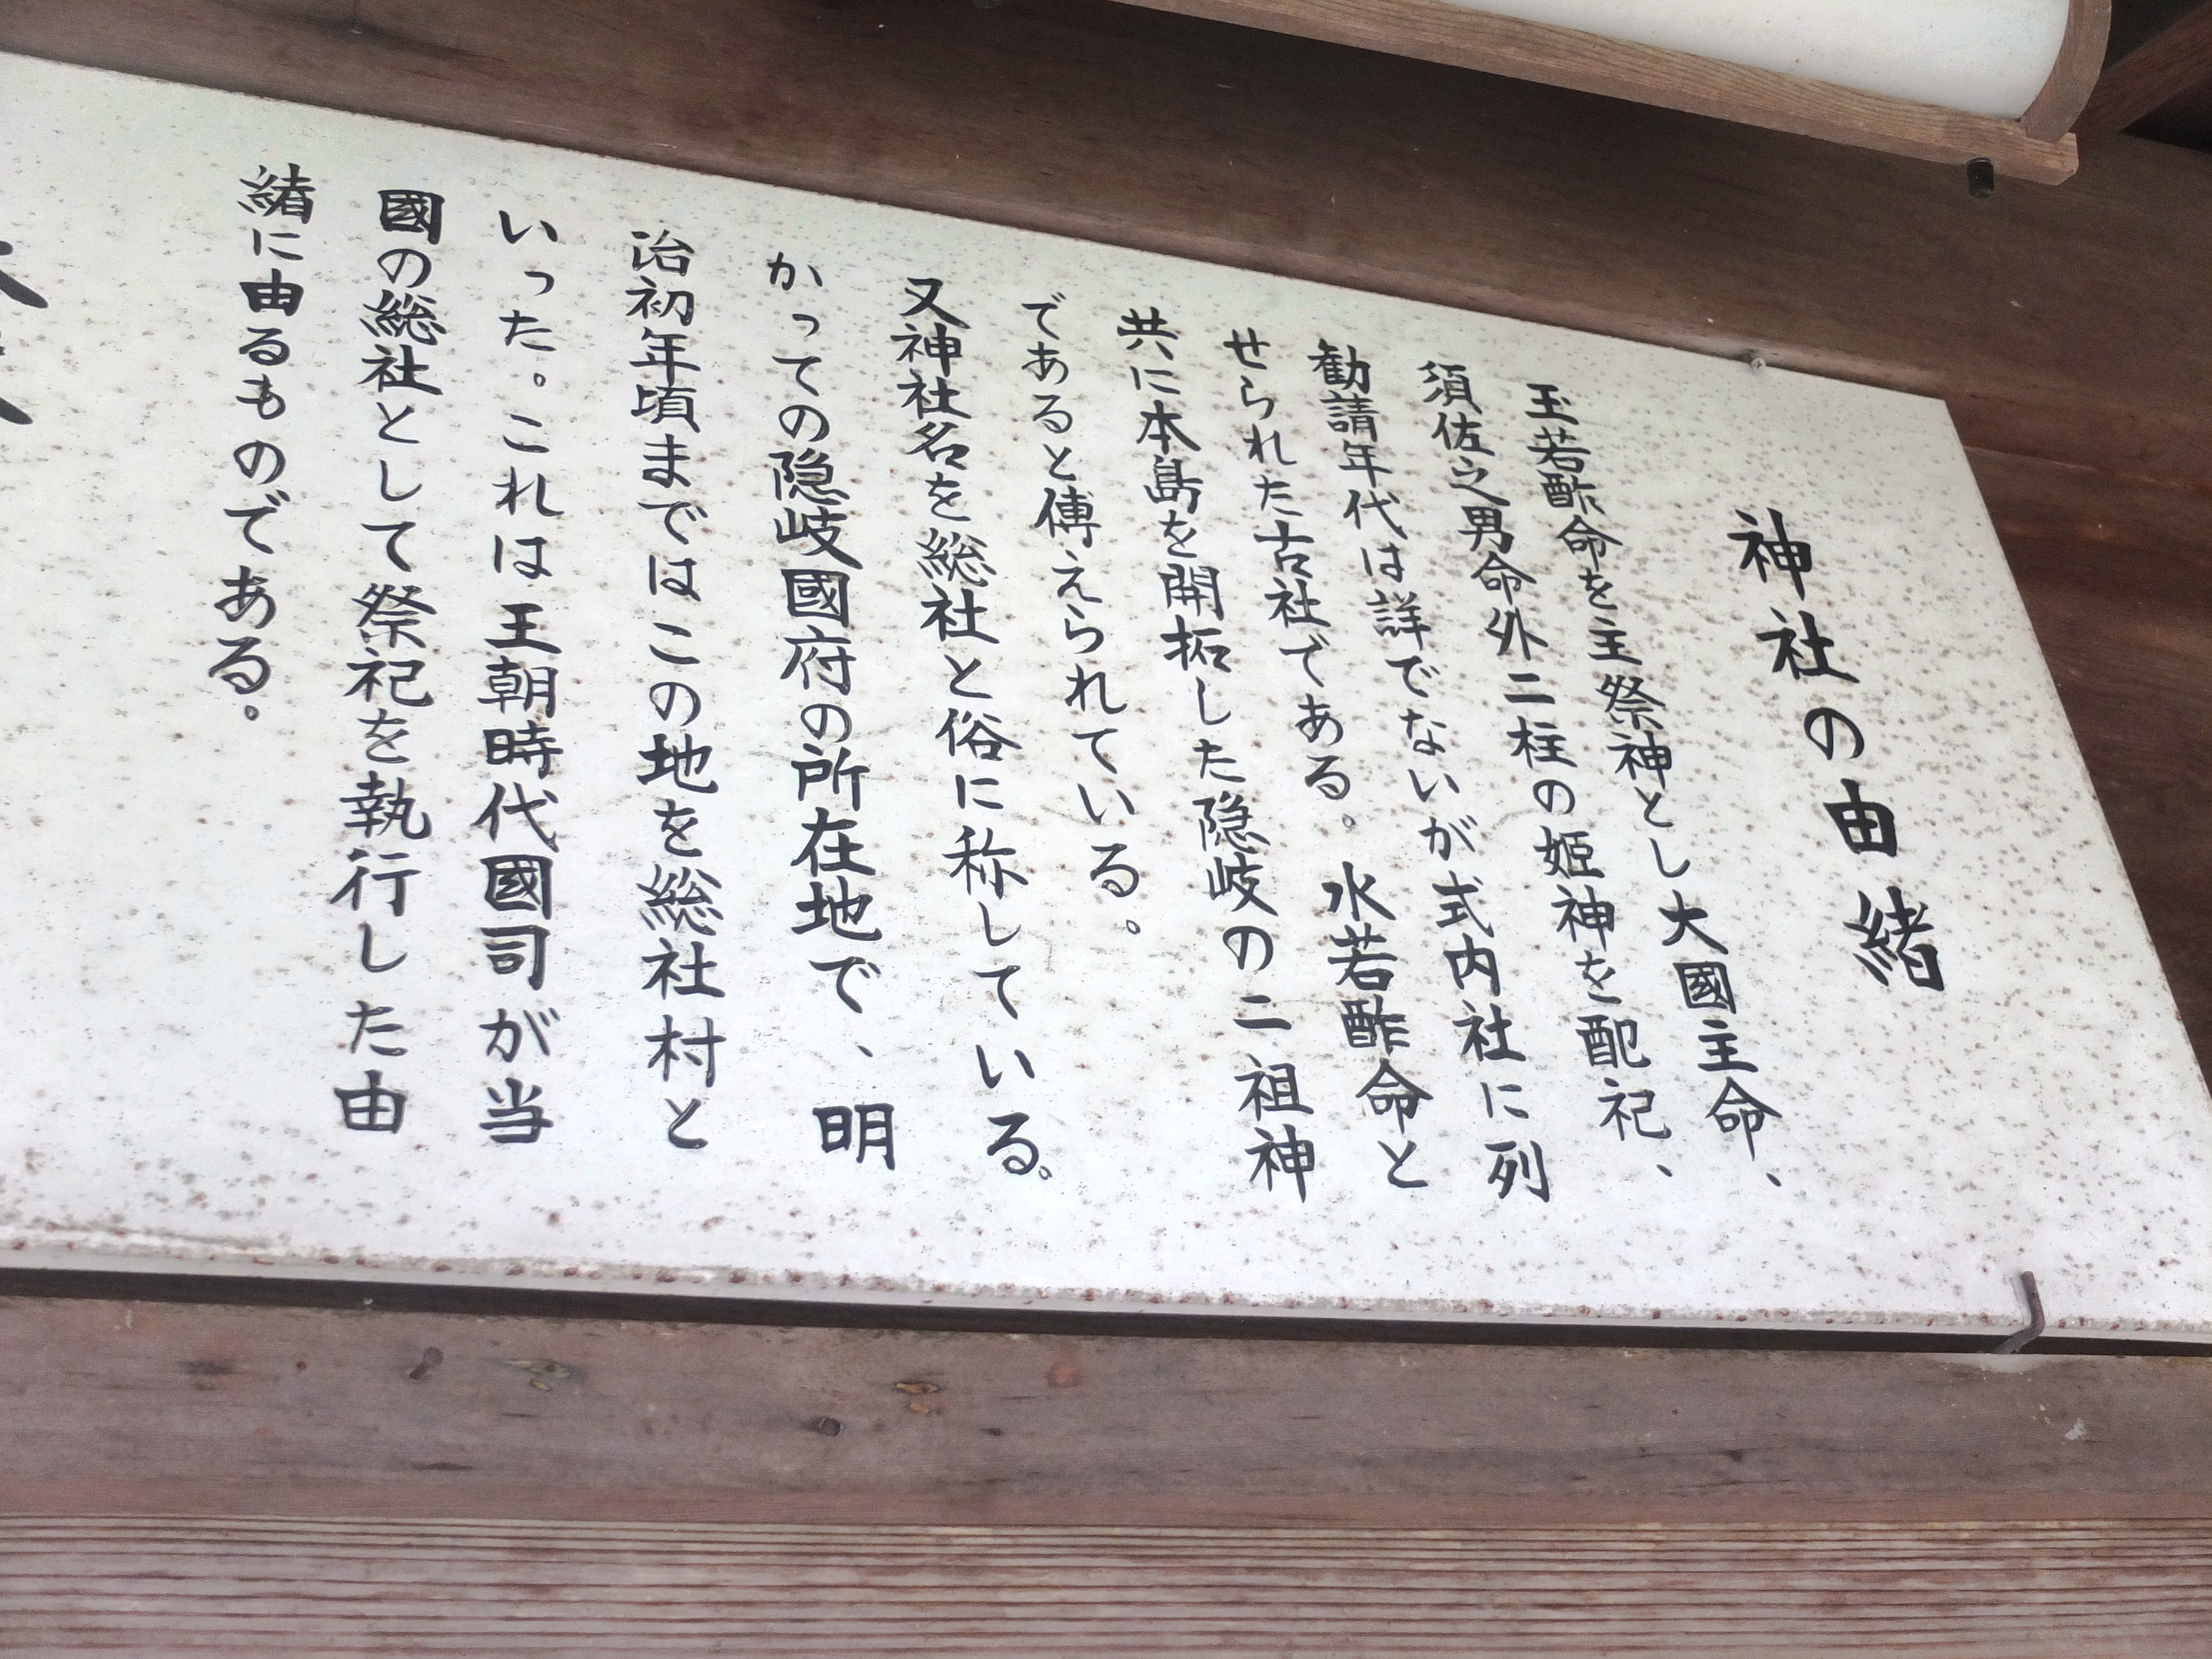 神社の由緒
玉若酢命を主祭神とし大國主命、
須佐之男命外二柱の姫神を配祀、
勧請年代は詳でないが式内社に列
せられた古社である。水若酢命と
共に本島を開拓した隠岐の二祖神
であると傳えられている。
又神社名を総社と俗に称している。
かっての隠岐國府の所在地で、明
治初年頃まではこの地を総社村と
いった。これは王朝時代國司が当
國の総社として祭祀を執行した由
緒に由るものである。